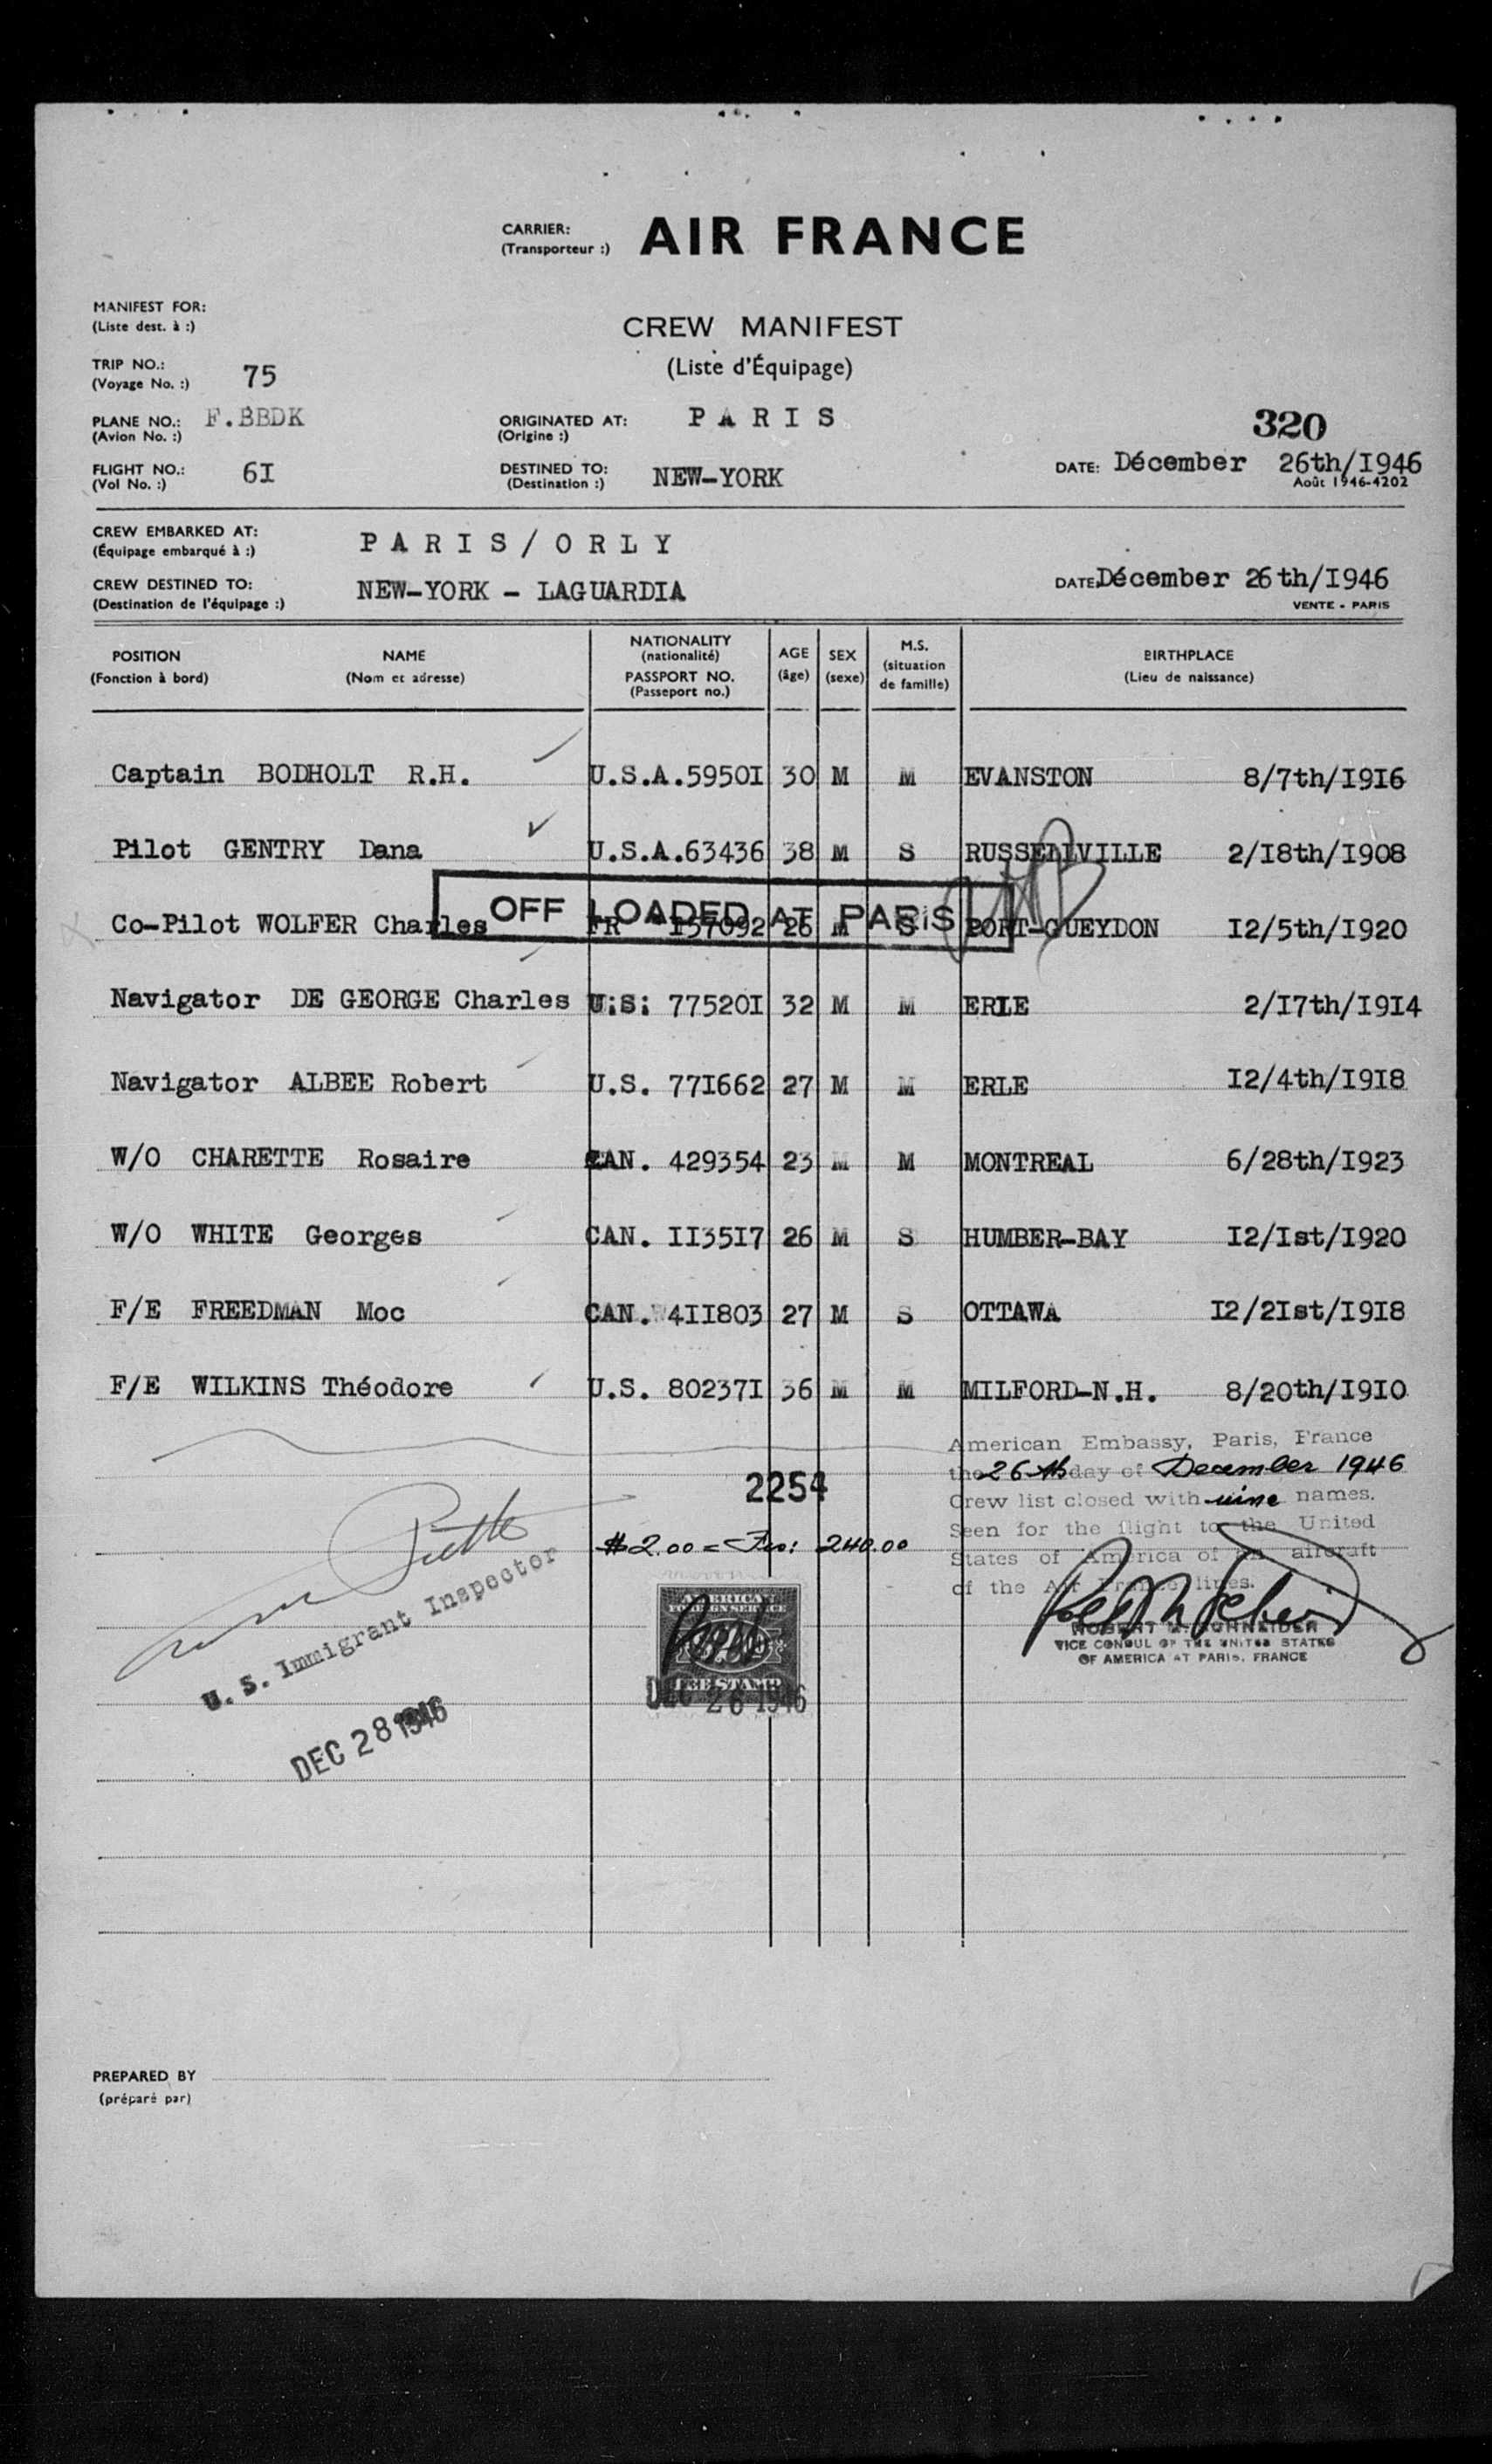 CARRIER: AIR FRANCE
(Transporteur :)
MANIFEST FOR:
(Liste dest. à :)
CREW MANIFEST
(Liste d'Équipage)
TRIP NO.: 75
(Voyage No. :)
PLANE NO.: F.BBDK
(Avion No. :)
ORIGINATED AT: PARIS
(Origine :)
320
FLIGHT NO.: 6I
(Vol No. :)
DESTINED TO: NEW-YORK
(Destination :)
DATE: Décember 26th/I946
Août 1946-4202
CREW EMBARKED AT: PARIS/ORLY
(Équipage embarqué à :)
CREW DESTINED TO: NEW-YORK - LAGUARDIA
(Destination de l'équipage :)
DATE: Décember 26th/I946
VENTE - PARIS
POSITION NAME NATIONALITY AGE SEX M.S. BIRTHPLACE
(Fonction à bord) (Nom et adresse) (nationalité) (âge) (sexe) (situation de famille) (Lieu de naissance)
PASSPORT NO.
(Passeport no.)
Captain BODHOLT R.H. U.S.A.5950I 30 M M EVANSTON 8/7th/I9I6
Pilot GENTRY Dana U.S.A.63436 38 M S RUSSELLVILLE 2/I8th/I908
OFF LOADED AT PARIS
Co-Pilot WOLFER Charles FR I57092 26 M S PORT-GUEYDON I2/5th/I920
Navigator DE GEORGE Charles U.S. 77520I 32 M M ERIE 2/I7th/I9I4
Navigator ALBEE Robert U.S. 77I662 27 M M ERLE I2/4th/I9I8
W/O CHARETTE Rosaire CAN. 429354 23 M M MONTREAL 6/28th/I923
W/O WHITE Georges CAN. II35I7 26 M S HUMBER-BAY I2/Ist/I920
F/E FREEDMAN Moc CAN. 4II803 27 M S OTTAWA I2/2Ist/I9I8
F/E WILKINS Théodore U.S. 80237I 36 M M MILFORD-N.H. 8/20th/I9I0
American Embassy, Paris, France
the 26th day of December 1946
Crew list closed with nine names.
Seen for the flight to the United
States of America of an aircraft
of the Air France lines.
ROBERT M. SCHNEIDER
VICE CONSUL OF THE UNITED STATES
OF AMERICA AT PARIS, FRANCE
2254
$2.00 = Frs: 240.00
AMERICAN
FOREIGN SERVICE
FEE STAMP
DEC 26 1946
U. S. Immigrant Inspector
DEC 28 1946
PREPARED BY
(préparé par)